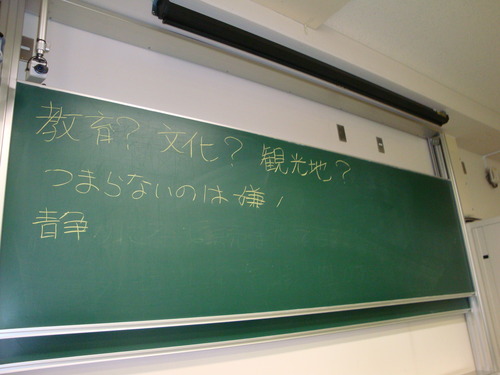 教育? 文化? 観光地?
つまらないのは嫌!
静